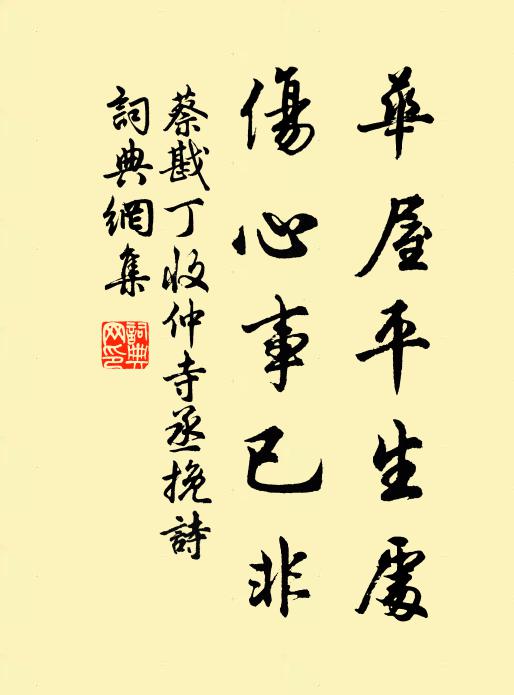 華屋平生處
傷心事已非
蔡戡丁收仲寺丞挽詩
詞典網集
詞典网印